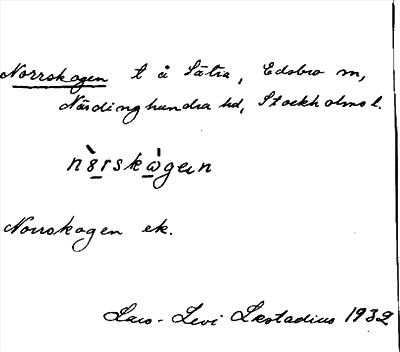 Norrskogen t å Sätra, Edsbro sn,
Närdinghundra hd, Stockholms l.
nòrskògen
Norrskogen ek.
Lars-Levi Læstadius 1932